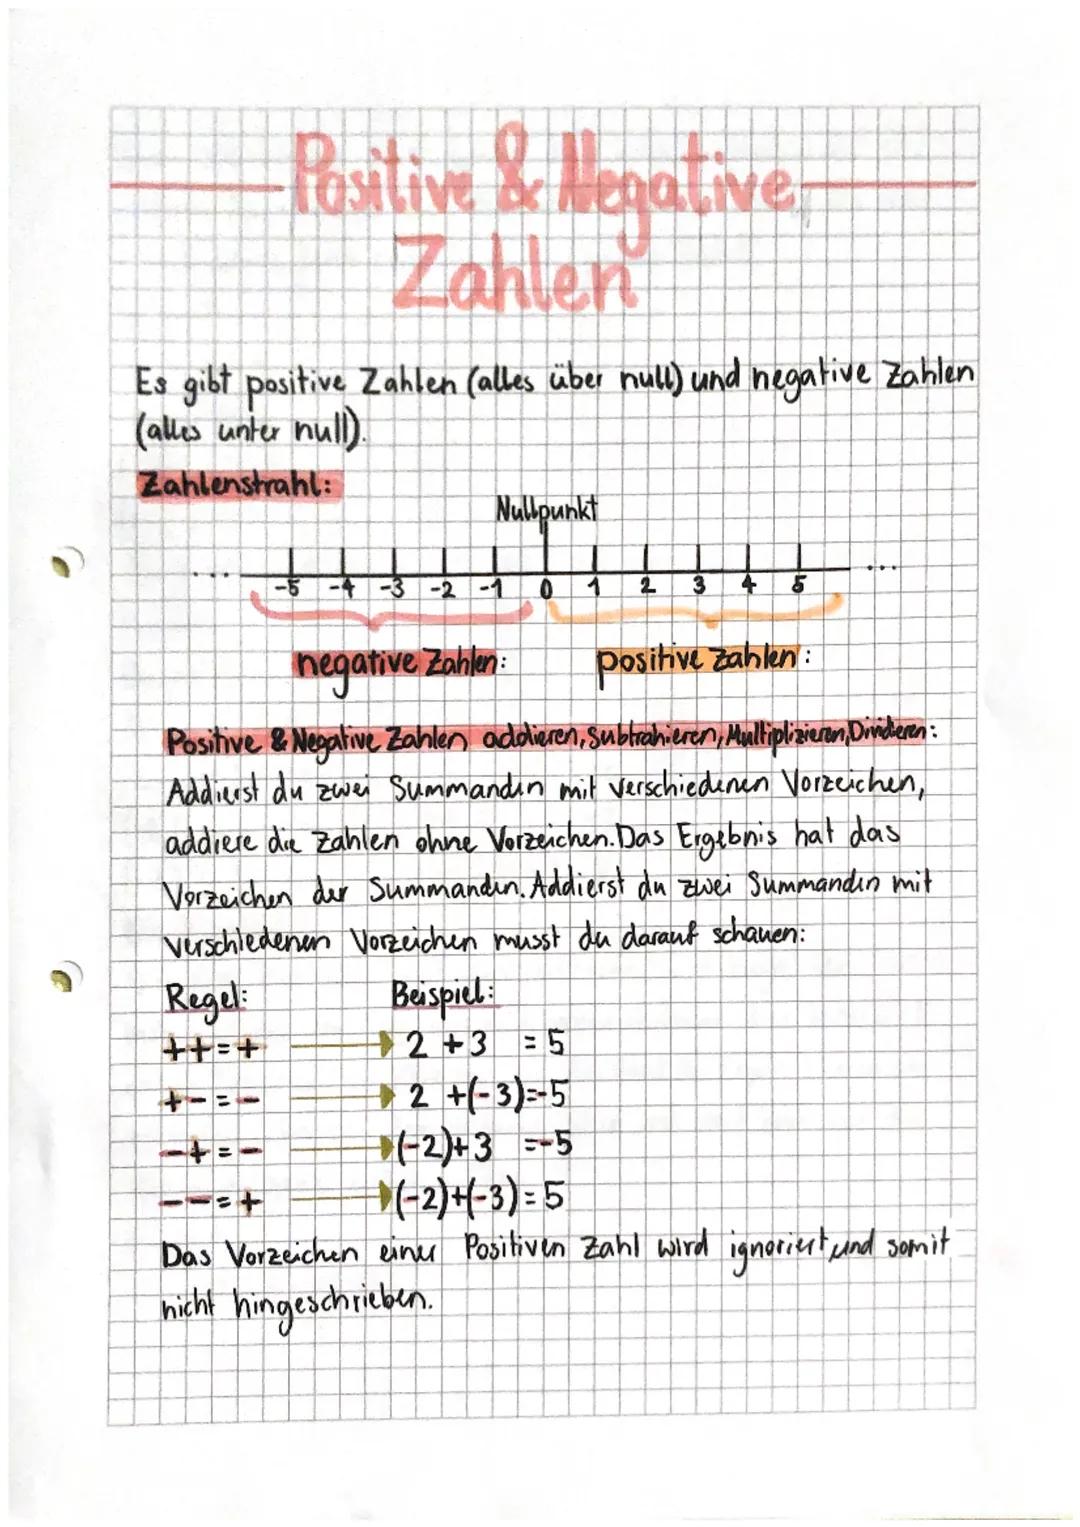 Positive & Negative
Zahlen
Es gibt positive Zahlen (alles über null) und negative Zahlen
(alles unter null).
Zahlenstrahl:
Nullpunkt
... -5 -4 -3 -2 -1 0 1 2 3 4 5 ...
negative Zahlen: positive Zahlen:
Positive & Negative Zahlen addieren, Subtrahieren, Multiplizieren, Dividieren:
Addierst du zwei Summanden mit verschiedenen Vorzeichen,
addiere die Zahlen ohne Vorzeichen. Das Ergebnis hat das
Vorzeichen der Summanden. Addierst du zwei Summanden mit
verschiedenen Vorzeichen musst du darauf schauen:
Regel: Beispiel:
++=+ 2 +3 =5
+-=- 2 +(-3)=-5
-+=- (-2)+3 =-5
--=+ (-2)+(-3)=5
Das Vorzeichen einer Positiven Zahl wird ignoriert, und somit
nicht hingeschrieben.